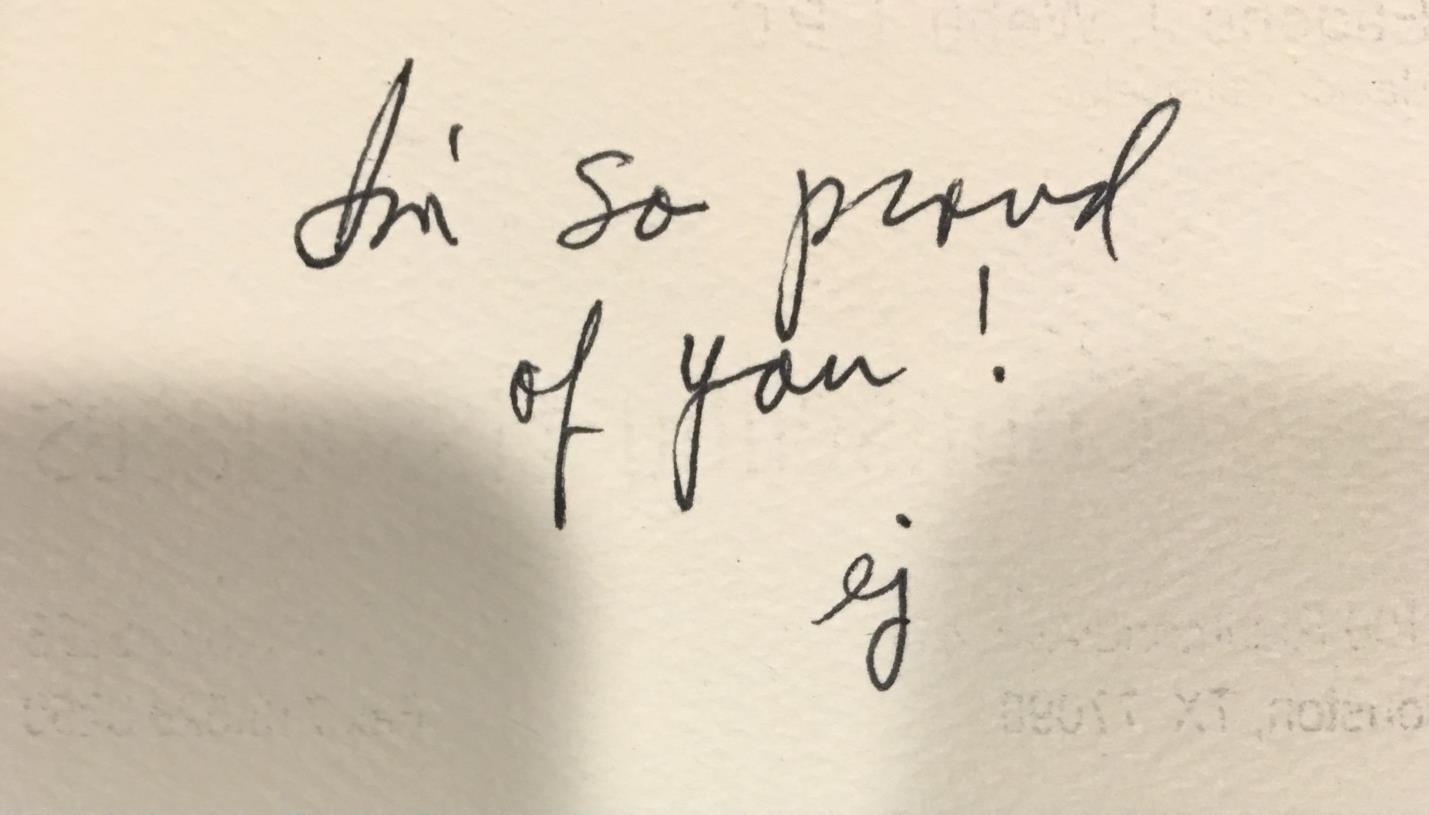 I'm so proud
of you!
ej